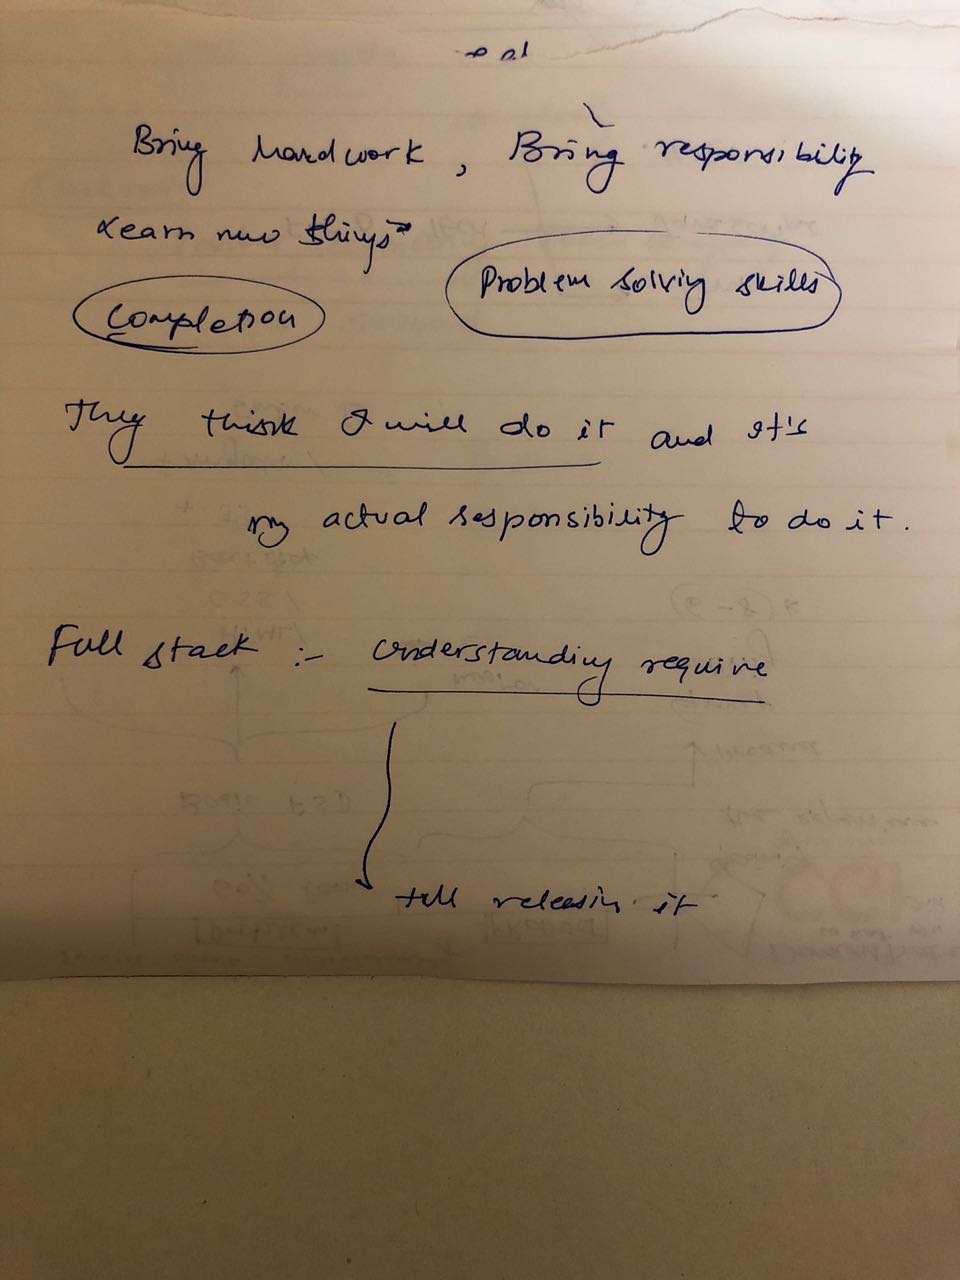 Bring hardwork, Bring responsibility
Learn new things
Problem solving skills
Completion
They think I will do it and it's
my actual responsibility to do it.
Full stack :- Understanding require
till releasin it